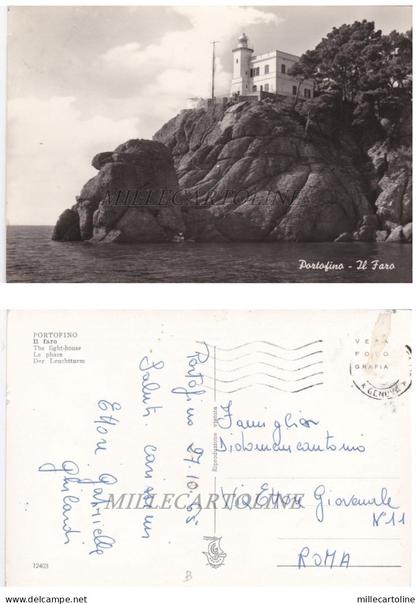 MILLECARTOLINE
Portofino - Il Faro
PORTOFINO
Il faro
The light-house
Le phare
Der Leuchtturm
Portofino 27.10.65
Saluti carissimi
Ettore Gabriella
Ghilardi
Riproduzione vietata
VERA
FOTO
GRAFIA
GENOVA
Famiglia
Didomenicantonio
Via Ettore Giovenale
N° 11
ROMA
MILLECARTOLINE
12403
B
© millecartoline
www.millecartoline.com